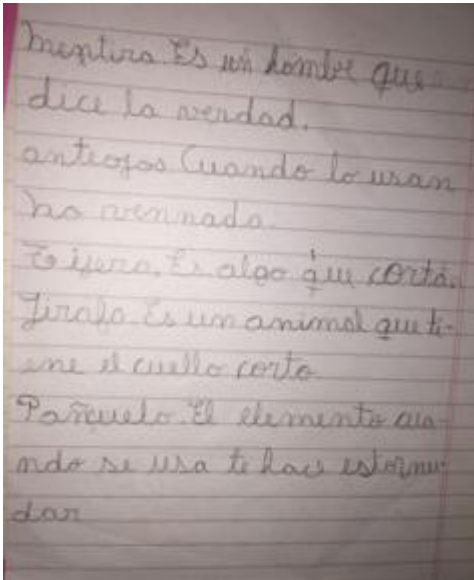 mentira Es un hombre que
dice la verdad.
anteojos Cuando lo usan
no ven nada.
Tijera. Es algo que corta.
Jirafa Es un animal que ti-
ene el cuello corto
Pañuelo. El elemento cua-
ndo se usa te hace estornu-
dar